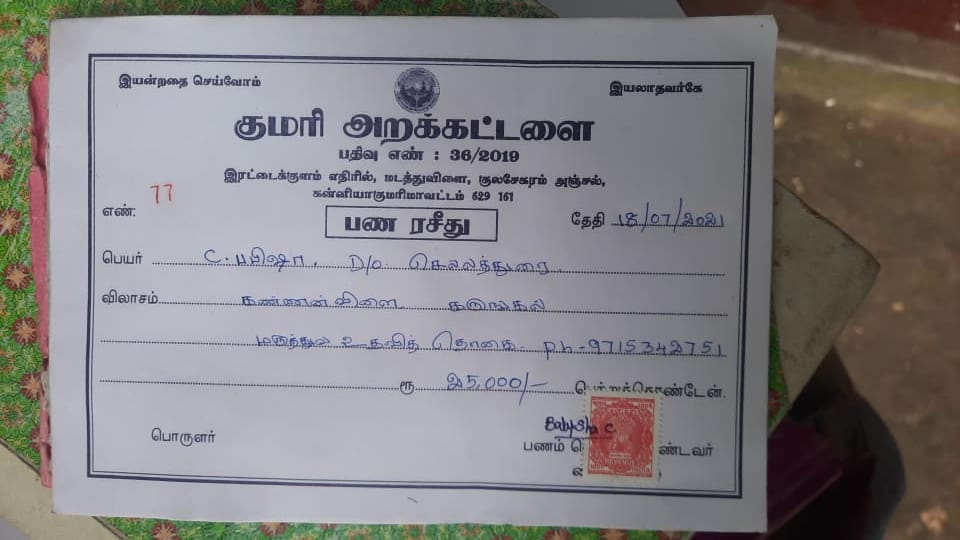 இயன்றதை செய்வோம்
இயலாதவர்கே
குமரி அறக்கட்டளை
பதிவு எண் : 36/2019
இரட்டைக்குளம் எதிரில், மடத்துவிளை, குலசேகரம் அஞ்சல்,
கன்னியாகுமரிமாவட்டம் 629 161
எண்: 77
பண ரசீது
தேதி 18/07/2021
பெயர் C. பபிஷா. D/o. செல்லத்துரை
விலாசம் கண்ணன்விளை கருங்கல்
மருத்துவ உதவித் தொகை. ph-9715342751
ரூ 25,000/-
Babysha C.
பொருளர்
பணம்
REVENUE